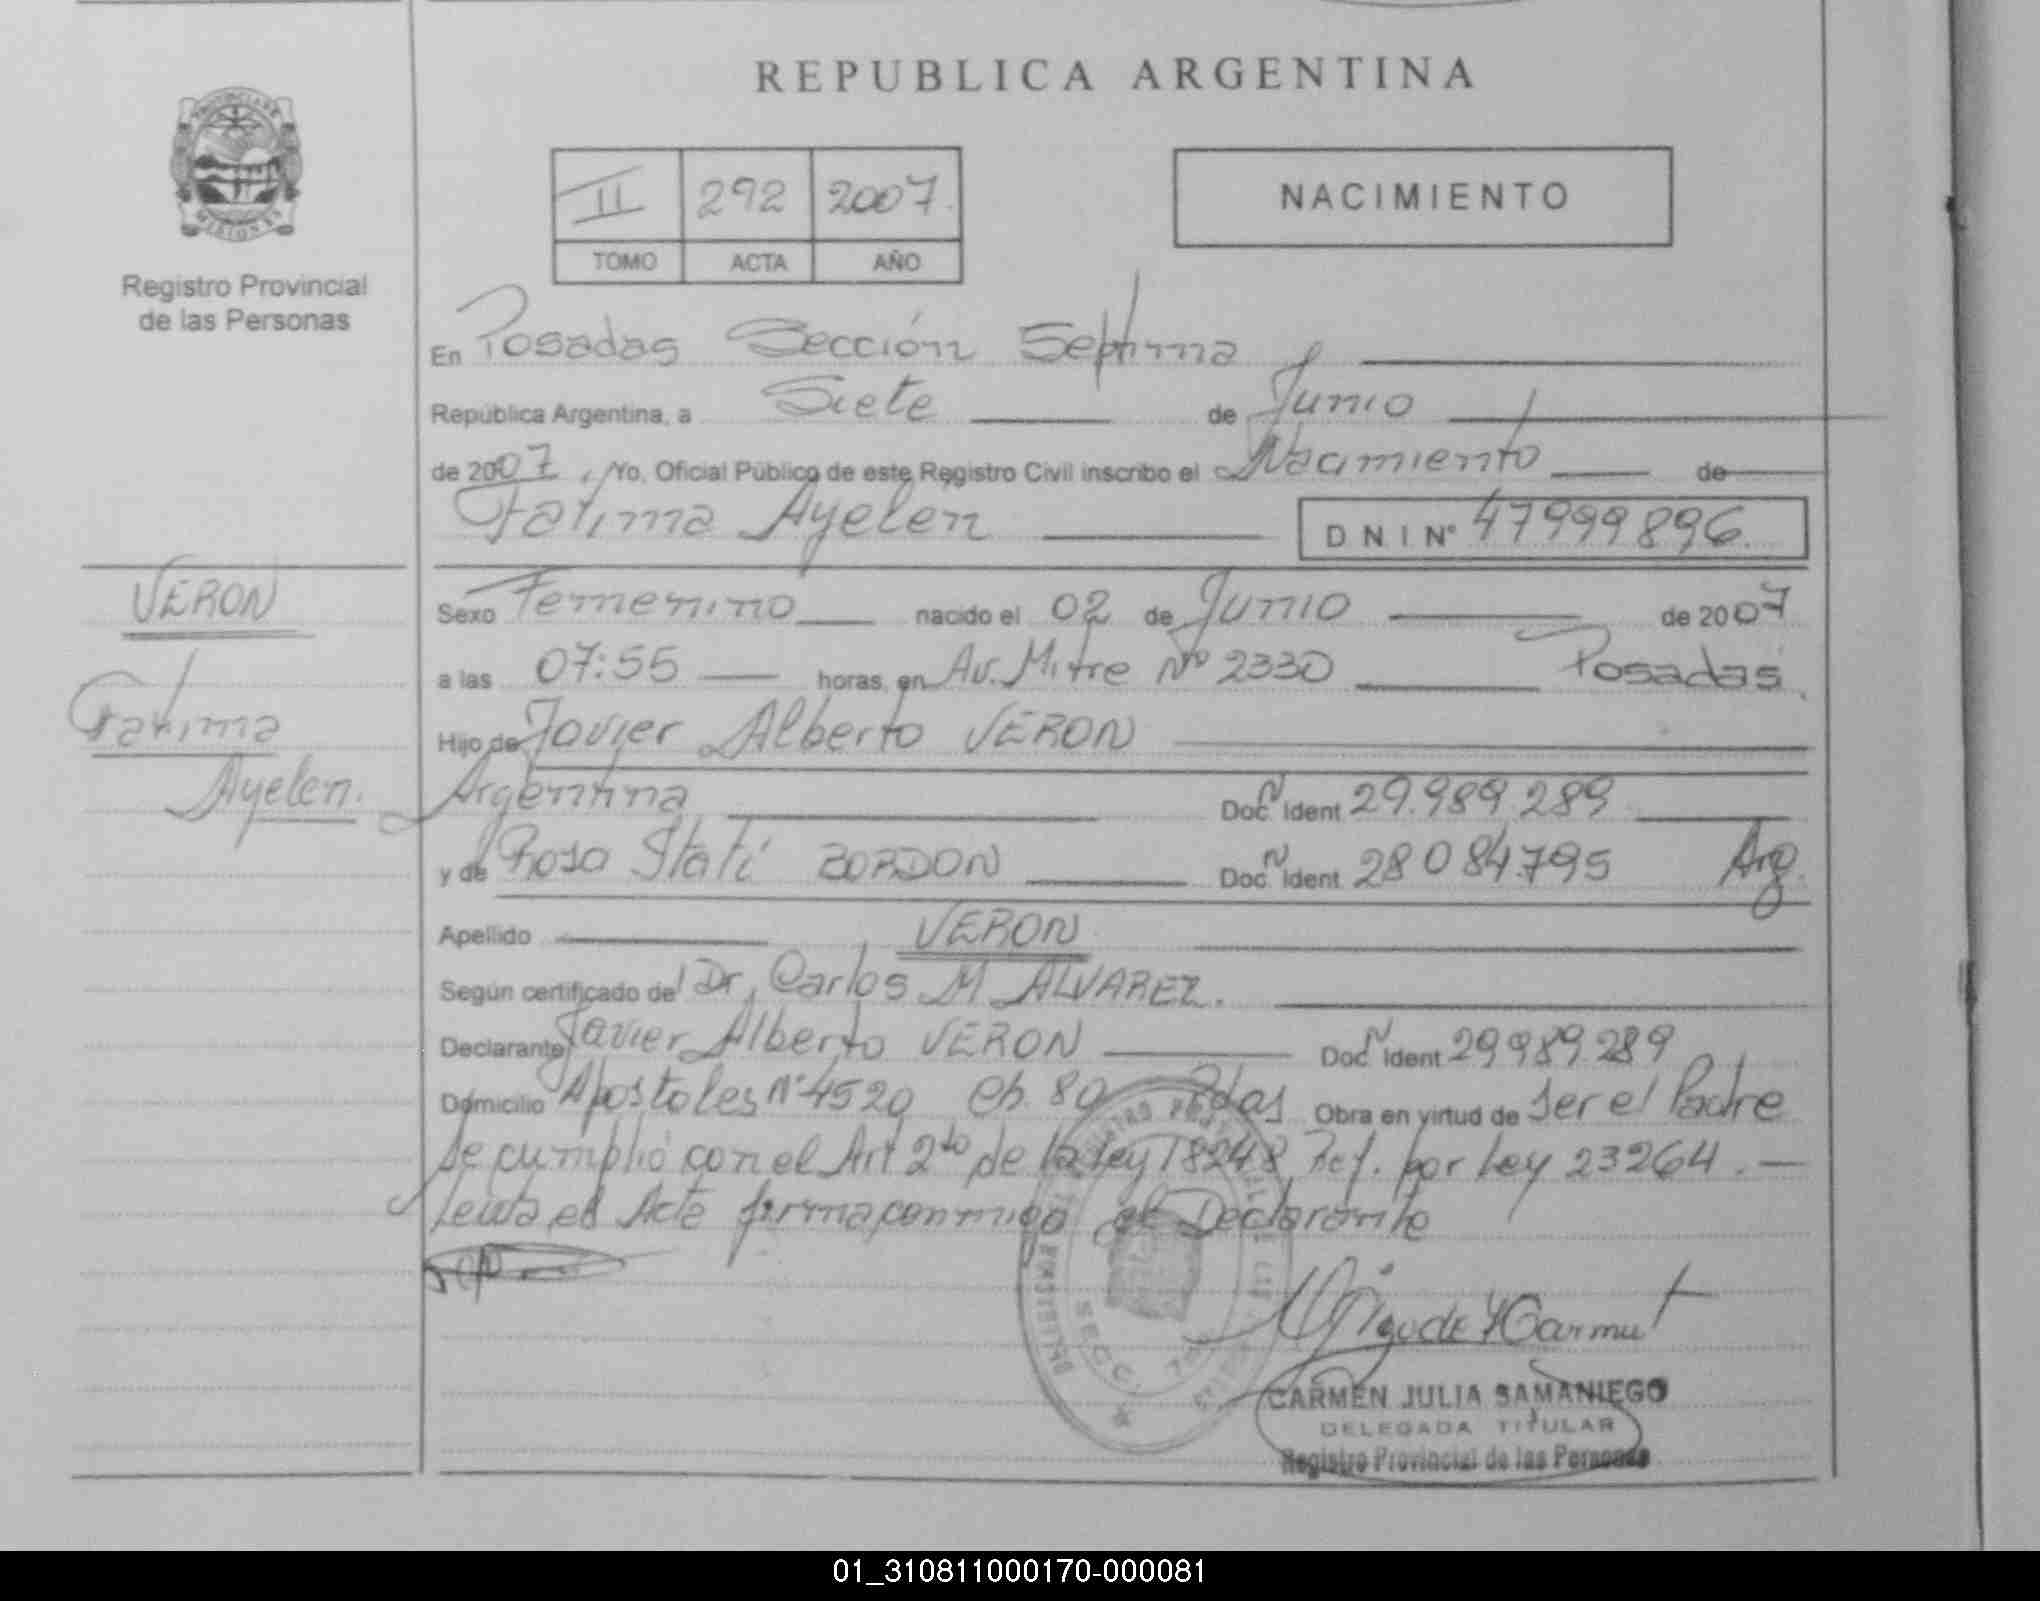 REPUBLICA ARGENTINA
PROVINCIA DE
MISIONES
Registro Provincial
de las Personas
II 292 2007
TOMO ACTA AÑO
NACIMIENTO
En Posadas Sección Septima
República Argentina, a Siete de Junio
de 2007, Yo, Oficial Público de este Registro Civil inscribo el Nacimiento de
Fatima Ayelen DNI Nº 47999896.
VERON
Fatima
Ayelen.
Sexo Femenino nacido el 02 de Junio de 2007
a las 07:55 horas, en Av. Mitre Nº 2330 Posadas.
Hijo de Javier Alberto VERON
Argentina Doc. Ident 29.989.289
y de Rosa Itatí BORDON Doc. Ident 28084.795 Arg.
Apellido VERON
Según certificado del Dr. Carlos M ALVAREZ.
Declarante Javier Alberto VERON Doc. Ident 29989.289
Domicilio Apostoles Nº 4520 Ch. 80 Pdas Obra en virtud de ser el Padre
Se cumplió con el Art 2do de la Ley 18248 Ref. por Ley 23264.
Leida el Acta firma conmigo el Declarante
SECC. 7
CARMEN JULIA SAMANIEGO
DELEGADA TITULAR
Registro Provincial de las Personas
01_310811000170-000081